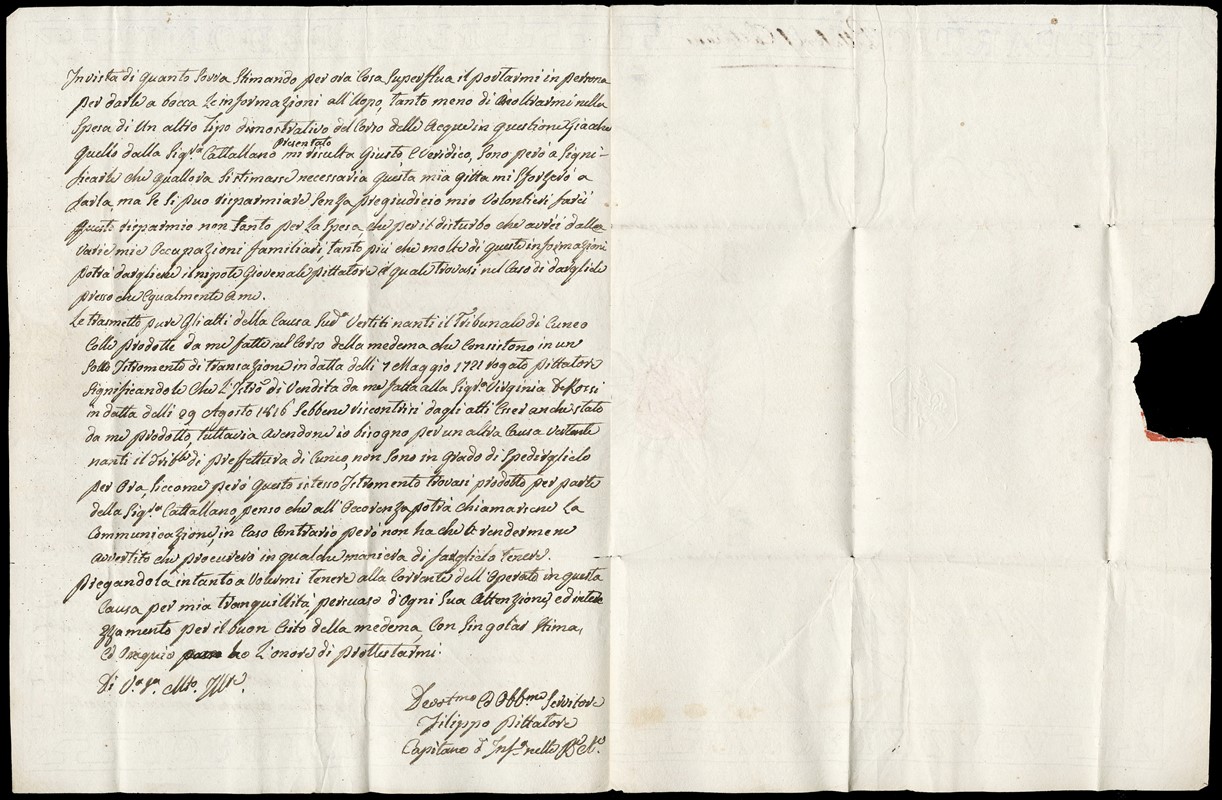 In vista di quanto Sovra Stimando per ora Cosa Superflua il portarmi in persona
per darle a bocca Le informazioni all'Uopo, tanto meno di inoltrarmi nella
Spesa di Un altro Tipo dimostrativo del Corso delle Acque in questione Giacche
quello dalla Sigra Cattallano presentato mi risulta Giusto e Veridico, Sono però a Signi-
ficarle che quallora Si stimasse necessaria questa mia gitta mi Sforzerò a
farla, ma Se Si può risparmiare Senza pregiudicio mio Volontieri farei
questo risparmio non tanto per La Spesa che per il disturbo che avrei dalle
Varie mie Occupazioni famigliari, tanto più che molte di queste informazioni
potrà dargliene il nipote Giovenale Pittatore il quale trovasi nel Caso di dargliele
presso che Egualmente a me.
Le trasmetto pure Gli atti della Causa Suda Vertiti nanti il Tribunale di Cuneo
Colle prodotte da me fatte nel Corso della medema che Consistono in un
Sollo Istromento di transazione in datta delli 7 Maggio 1721 rogato Pittatore
Significandole Che L'Istro di Vendita da me fatta alla Sigra Virginia DeRossi
in datta delli 29 Agosto 1816 Sebbene riscontrisi dagli atti Esser anche stato
da me prodotto, tuttavia avendone io bisogno per un altra Causa Vertente
nanti il Trible di preffettura di Cuneo, non Sono in grado di Spedirglielo
per Ora, Siccome però questo istesso Istromento trovasi prodotto per parte
della Sigra Cattallano, penso che all'Occorenza potrà chiamarsene La
Communicazione, in Caso Contrario però non ha che à rendermene
avvertito che procurerò in qualche maniera di farglielo tenere.
Pregandola intanto a Volermi tenere alla Corrente dell'Operato in questa
Causa per mia tranquillità, persuaso d'Ogni Sua Attenzione, ed intere
ssamento per il buon Esito della medema, Con Singolar Stima,
ed Ossequio ho L'onore di prottestarmi
Di V.a S.a Mto. Illre.
Devotmo ed Obbmo Servitore
Filippo Pittatore
Capitano d'Infa nelle